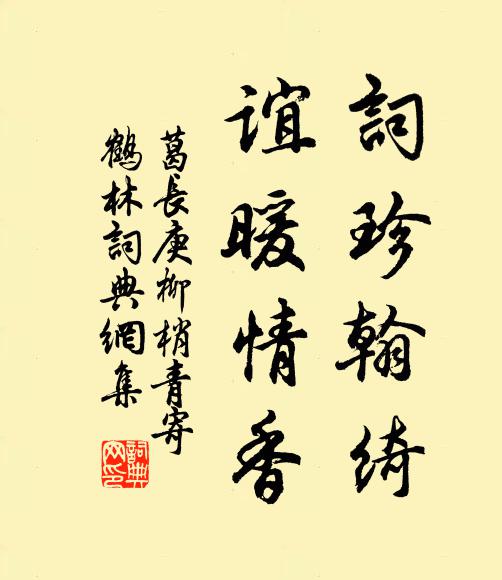 詞珍翰綺
誼暖情香
葛長庚柳梢青寄
鶴林詞典網集
詞典網印